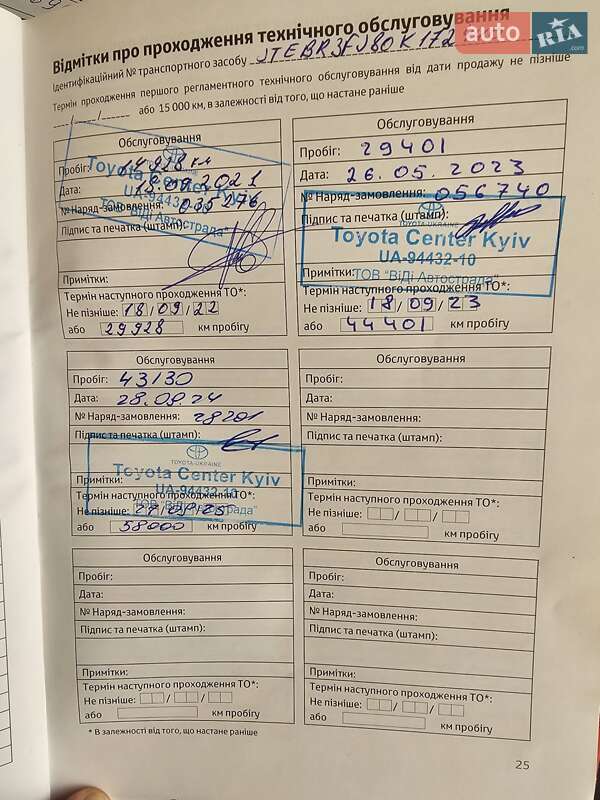 Відмітки про проходження технічного обслуговування
Ідентифікаційний № транспортного засобу JTEBR3FJ80K172
Термін проходження першого регламентного технічного обслуговування від дати продажу не пізніше
або 15 000 км, в залежності від того, що настане раніше
auto RIA .com
Обслуговування
Пробіг: 14 928 км
Дата: 2021
№ Наряд-замовлення: 035276
Підпис та печатка (штамп):
TOYOTA-UKRAINE
Toyota Center Kyiv
UA-94432-10
ТОВ "ВіДі Автострада"
Примітки:
Термін наступного проходження ТО*:
Не пізніше: 18 / 09 / 22
або 29928 км пробігу
Обслуговування
Пробіг: 29401
Дата: 26.05.2023
№ Наряд-замовлення: 056740
Підпис та печатка (штамп):
TOYOTA-UKRAINE
Toyota Center Kyiv
UA-94432-10
ТОВ "ВіДі Автострада"
Примітки:
Термін наступного проходження ТО*:
Не пізніше: 18 / 09 / 23
або 44401 км пробігу
Обслуговування
Пробіг: 43130
Дата: 28.09.24
№ Наряд-замовлення: 28201
Підпис та печатка (штамп):
TOYOTA-UKRAINE
Toyota Center Kyiv
UA-94432-10
ТОВ "ВіДі Автострада"
Примітки:
Термін наступного проходження ТО*:
Не пізніше:
або 58000 км пробігу
Обслуговування
Пробіг:
Дата:
№ Наряд-замовлення:
Підпис та печатка (штамп):
Примітки:
Термін наступного проходження ТО*:
Не пізніше: / /
або км пробігу
Обслуговування
Пробіг:
Дата:
№ Наряд-замовлення:
Підпис та печатка (штамп):
Примітки:
Термін наступного проходження ТО*:
Не пізніше: / /
або км пробігу
Обслуговування
Пробіг:
Дата:
№ Наряд-замовлення:
Підпис та печатка (штамп):
Примітки:
Термін наступного проходження ТО*:
Не пізніше: / /
або км пробігу
* В залежності від того, що настане раніше
25